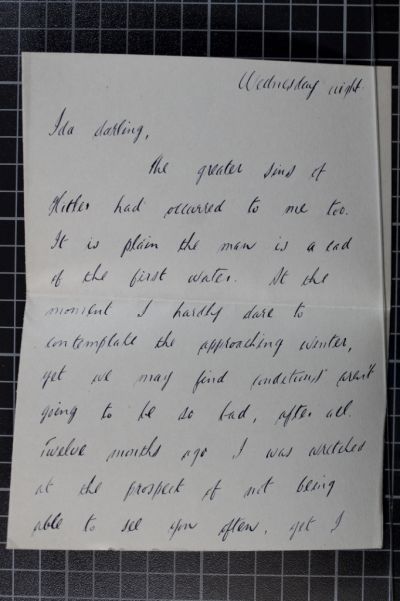 Wednesday night.
Ida darling,
The greater sins of
Hitler had occurred to me too.
It is plain the man is a cad
of the first water. At the
moment I hardly dare to
contemplate the approaching winter,
yet we may find conditions aren't
going to be so bad, after all.
Twelve months ago I was wretched
at the prospect of not being
able to see you often, yet I